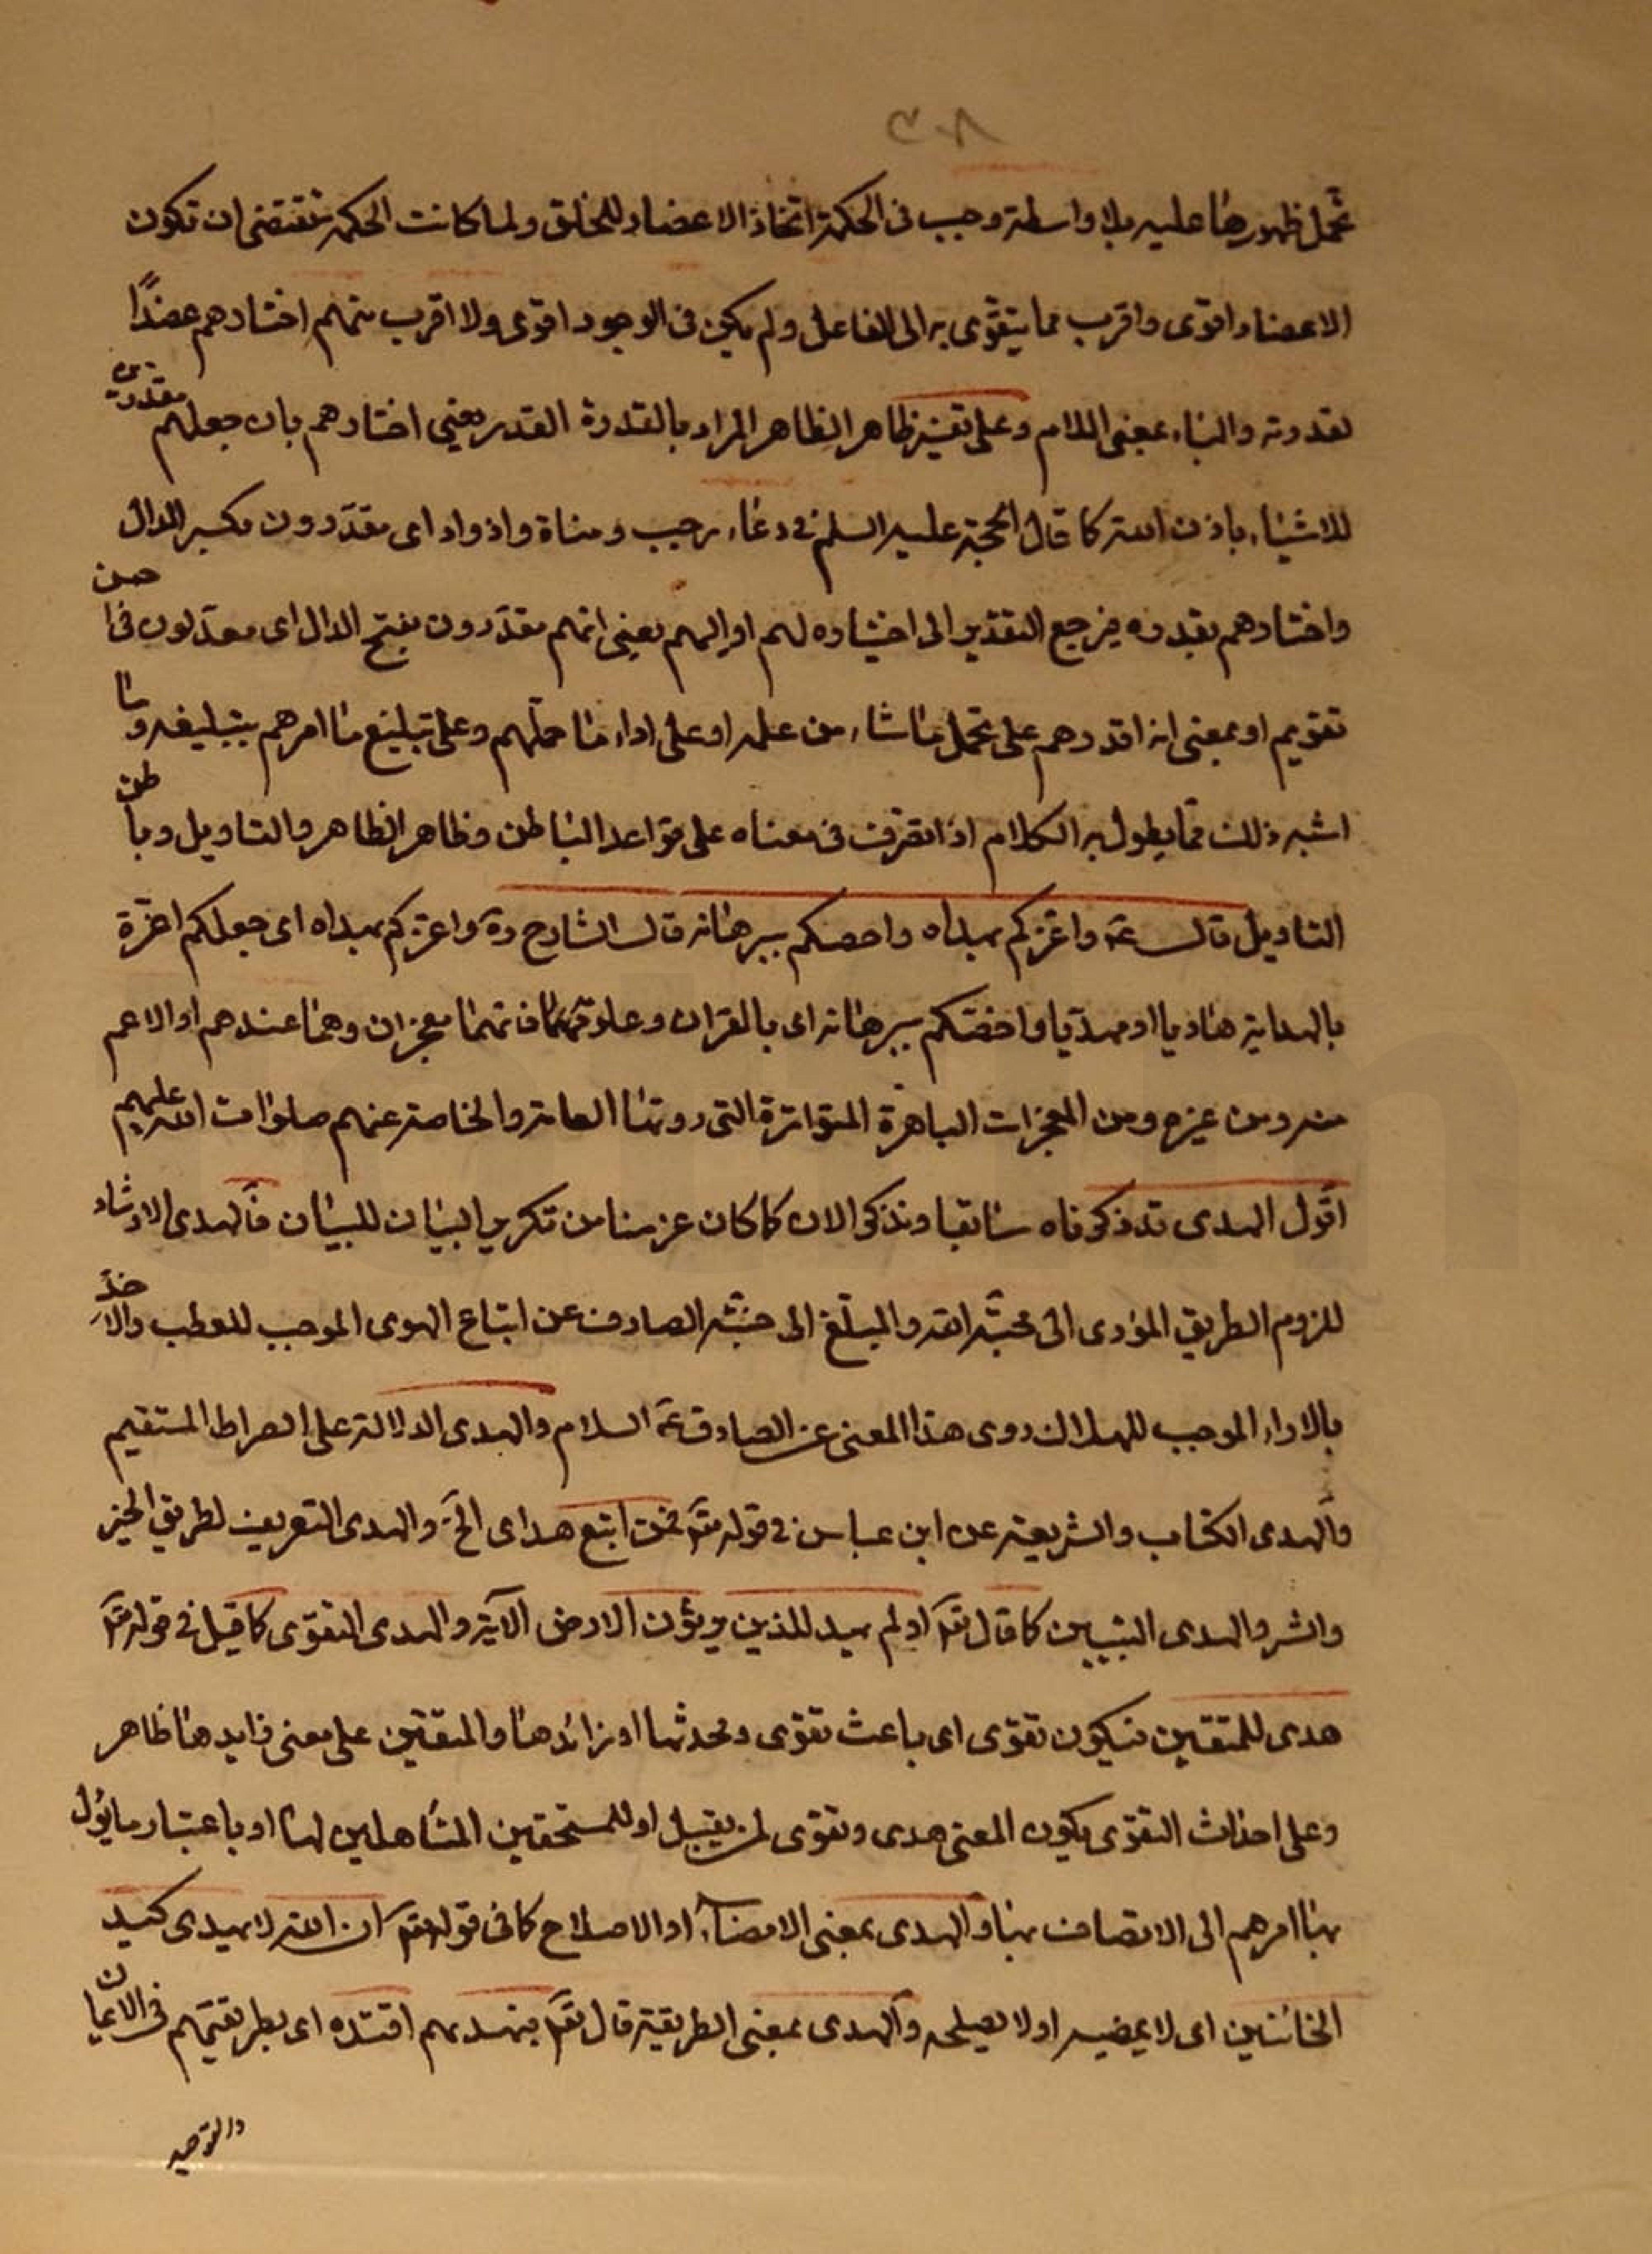 ٣٠٨
تحمل ظهورها عليه بلا واسطة وجب في الحكمة اتخاذ الاعضاد للخلق ولما كانت الحكمة تقتضي ان تكون
الاعضاد اقوى واقرب مما يتقوى به الى الفاعل ولم يكن في الوجود اقوى ولا اقرب منهم اختارهم عضدًا
لقدرته والباء بمعنى اللام وعلى تفسير ظاهر الظاهر المراد بالقدرة القدر يعني اختارهم بان جعلهم مقدرين
للاشياء باذن الله كما قال الحجة عليه السلم في دعاء رجب ومناة واذواد اى مقدّرون بكسر الدال
واختارهم بقدره فيرجع التقدير الى اختياره لهم او اليهم يعني انهم مقدّرون بفتح الدال اى معدّلون في احسن
تقويم او بمعنى انه اقدرهم على تحمل ما شاء من علمه او على اداء ما حملهم وعلى تبليغ ما امرهم بتبليغه وما
اشبه ذلك مما يطول به الكلام اذا تصرف في معناه على قواعد الباطن وظاهر الظاهر والتاويل وباطن
التاويل قال ع واعزكم بهداه واخصكم ببرهانه قال الشارح ره واعزكم بهداه اى جعلكم اعزة
بالهداية هاديا او مهديا واخصكم ببرهانه اى بالقران وعلومهما فانهما معجزان وهما عندهم او الاعم
منه ومن غيره ومن المعجزات الباهرة المتواترة التى روتها العامة والخاصة عنهم صلوات الله عليهم
اقول الهدى قد ذكرناه سابقا ونذكر الان كما كان عزمنا من تكرير البيان للبيان فالهدى الارشاد
للزوم الطريق المؤدى الى محبته الله والمبلغ الى جنته الصارف عن اتباع الهوى الموجب للعطب والاخذ
بالاراء الموجب للهلاك روى هذا المعنى عن الصادق ع السلام والهدى الدلالة على الصراط المستقيم
والهدى الكتاب والشريعة عن ابن عباس في قوله تع فمن اتبع هداى الخ والهدى التعريف لطريق الخير
والشر والهدى التبيين كما قال تع اولم يهد للذين يرثون الارض الآية والهدى التقوى كما قيل في قوله تع
هدى للمتقين فيكون تقوى اى باعث تقوى ومحدثها او زائدها والمتقين على معنى زايدها ظاهر
وعلى احداث التقوى يكون المعنى هدى وتقوى لمن يقبل او للمستحقين المتاهلين لها او باعتبار ما يؤل
بها امرهم الى الاتصاف بها والهدى بمعنى الامضاء او الاصلاح كما في قوله تع ان الله لا يهدى كيد
الخائنين اى لا يمضيه او لا يصلحه والهدى بمعنى الطريقة قال تع فبهديهم اقتده اى بطريقتهم في الايمان
والتوحيد